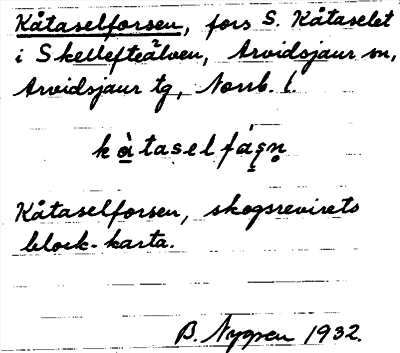 Kåtaselforsen, fors S. Kåtaselet
i Skellefteälven, Arvidsjaur sn,
Arvidsjaur tg, Norrb. l.
kå̀taselfá̱ṣn̥
Kåtaselforsen, skogsrevirets
block-karta.
B. Nygren 1932.